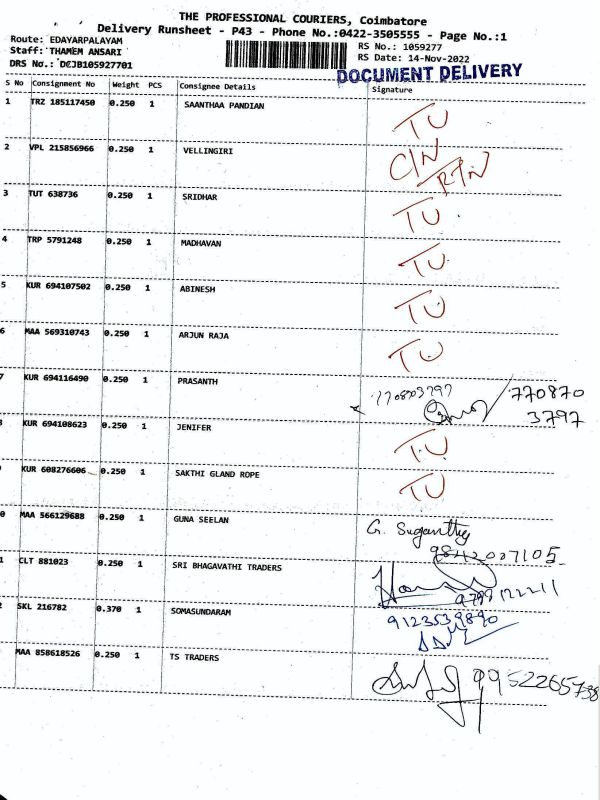 THE PROFESSIONAL COURIERS, Coimbatore
Delivery Runsheet - P43 - Phone No.:0422-3505555 - Page No.:1
Route: EDAYARPALAYAM RS No.: 1059277
Staff: THAMEM ANSARI RS Date: 14-Nov-2022
DRS No.: DCJB105927701
DOCUMENT DELIVERY
S No Consignment No Weight PCS Consignee Details Signature
1 TRZ 185117450 0.250 1 SAANTHAA PANDIAN TU
2 VPL 215856966 0.250 1 VELLINGIRI C/N
RTN
3 TUT 638736 0.250 1 SRIDHAR TU
4 TRP 5791248 0.250 1 MADHAVAN TU
5 KUR 694107502 0.250 1 ABINESH TU
6 MAA 569310743 0.250 1 ARJUN RAJA TU
7 KUR 694116490 0.250 1 PRASANTH 7708703797 / 770870
3797
KUR 694108623 0.250 1 JENIFER TU
KUR 608276606 0.250 1 SAKTHI GLAND ROPE TU
0 MAA 566129688 0.250 1 GUNA SEELAN G. Suganthy
9842007105
1 CLT 881023 0.250 1 SRI BHAGAVATHI TRADERS
2 SKL 216782 0.370 1 SOMASUNDARAM 9123539890
MAA 858618526 0.250 1 TS TRADERS 9952265738